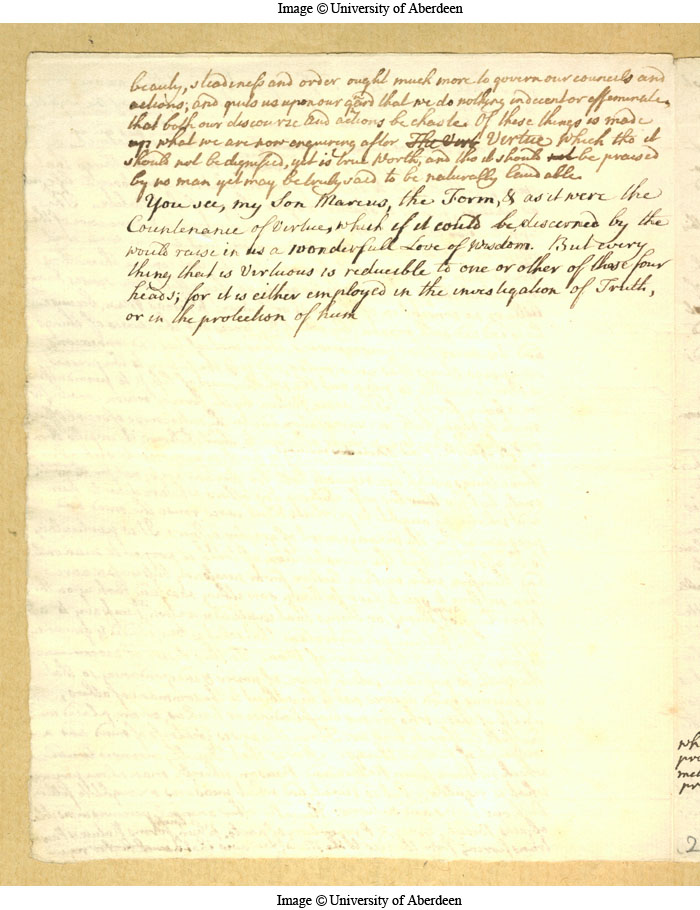 Image © University of Aberdeen
beauty, steadiness and order ought much more to govern our councils and
actions; and puts us upon our gard that we do nothing indecent or effeminate,
that both our discourse and actions be chaste. Of these things is made
up what we are now enquiring after The Vert Virtue which tho it
should not be dignified, yet is true worth, and tho it should not be praised
by no man yet may be truly said to be naturally laudable.
You see, my Son Marcus, the Form, & as it were the
Countenance of Virtue, which if it could be discerned by the
would raise in us a wonderfull Love of Wisdom. But every
thing that is Virtuous is reducible to one or other of these four
heads; for it is either employed in the investigation of Truth,
or in the protection of hum
wh
pro
met
pr
2
Image © University of Aberdeen